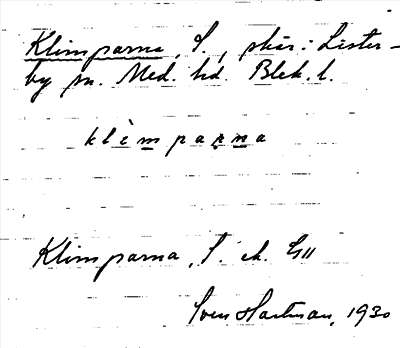 Klimparna, S., skär: Lister-
by sn. Med. hd. Blek. l.
klèmpaṛna
Klimparna, S. ek. G11
Sven Hartman, 1930